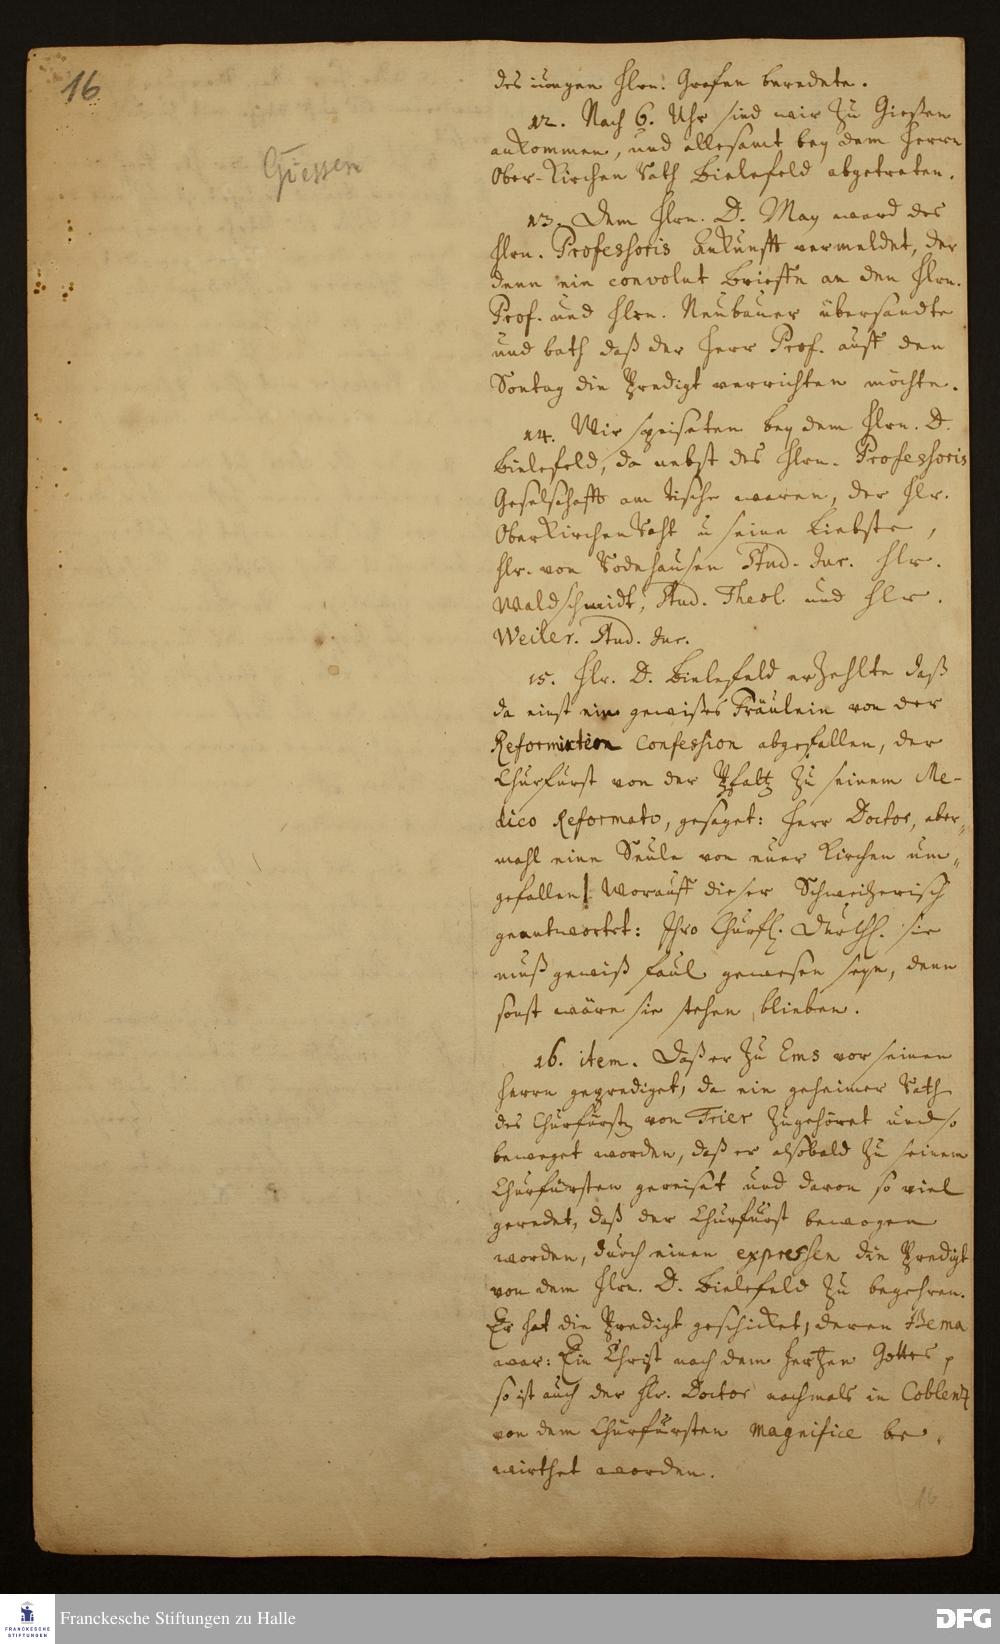 16
Giessen
des jungen Hrn. Grafen beredete.
12. Nach 6. Uhr sind wir zu Gießen
ankommen, und allesamt bey dem Herrn
Ober-Kirchen Rath Bielefeld abgetreten.
13. Dem Hrn. D. May ward des
Hrn. Professoris Ankunfft vermeldet, der
denn ein convolut Brieffe an den Hrn.
Prof. und Hrn. Neubauer übersandte
und bath daß der Herr Prof. auff den
Sontag die Predigt verrichten möchte.
14. Wir speiseten bey dem Hrn. D.
Bielefeld, da nebst des Hrn. Professoris
Geselschafft am Tische waren, der Hr.
OberKirchenRaht u seine Liebste,
Hr. von Rodehausen Stud. Jur. Hr.
Waldschmidt, Stud. Theol. und Hr.
Weiler. Stud. Jur.
15. Hr. D. Bielefeld erzehlte daß
da einst ein gewißes Fräulein von der
Confession abgefallen, der
Churfürst von der Pfaltz zu seinem Me-
dico Reformato, gesaget: Herr Doctor, aber„
mahl eine Seule von euer Kirchen um„
gefallen! Worauff dieser Schweitzerisch
geantwortet: Ihro Churfl. Durchl. sie
muß gewiß faul gewesen seyn, denn
sonst wäre sie stehen blieben.
16. item. Daß er zu Ems vor seinen
Herrn geprediget, da ein geheimer Rath
des Churfürst von Trier zugehöret und so
beweget worden, daß er alsobald zu seinem
Churfürsten gereiset und davon so viel
geredet, daß der Churfürst bewogen
worden, durch einen expressen die Predigt
von dem Hrn. D. Bielefeld zu begehren.
Er hat die Predigt geschicket, deren Thema
war: Ein Christ nach dem Hertzen Gottes,
so ist auch der Hr. Doctor nachmals in Coblentz
von dem Churfürsten magnifice be„
wirthet worden.
16
Franckesche Stiftungen zu Halle
FRANCKESCHE
STIFTUNGEN
DFG